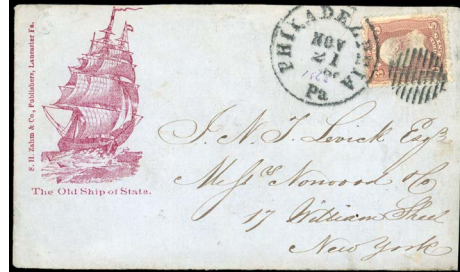 F. H. Zahm & Co., Publishers, Lancaster Pa.
The Old Ship of State.
PHILADELPHIA
NOV
21
Pa
J. N. T. Levick Esqr
Messrs Norwood & Co
17 William Street
New York